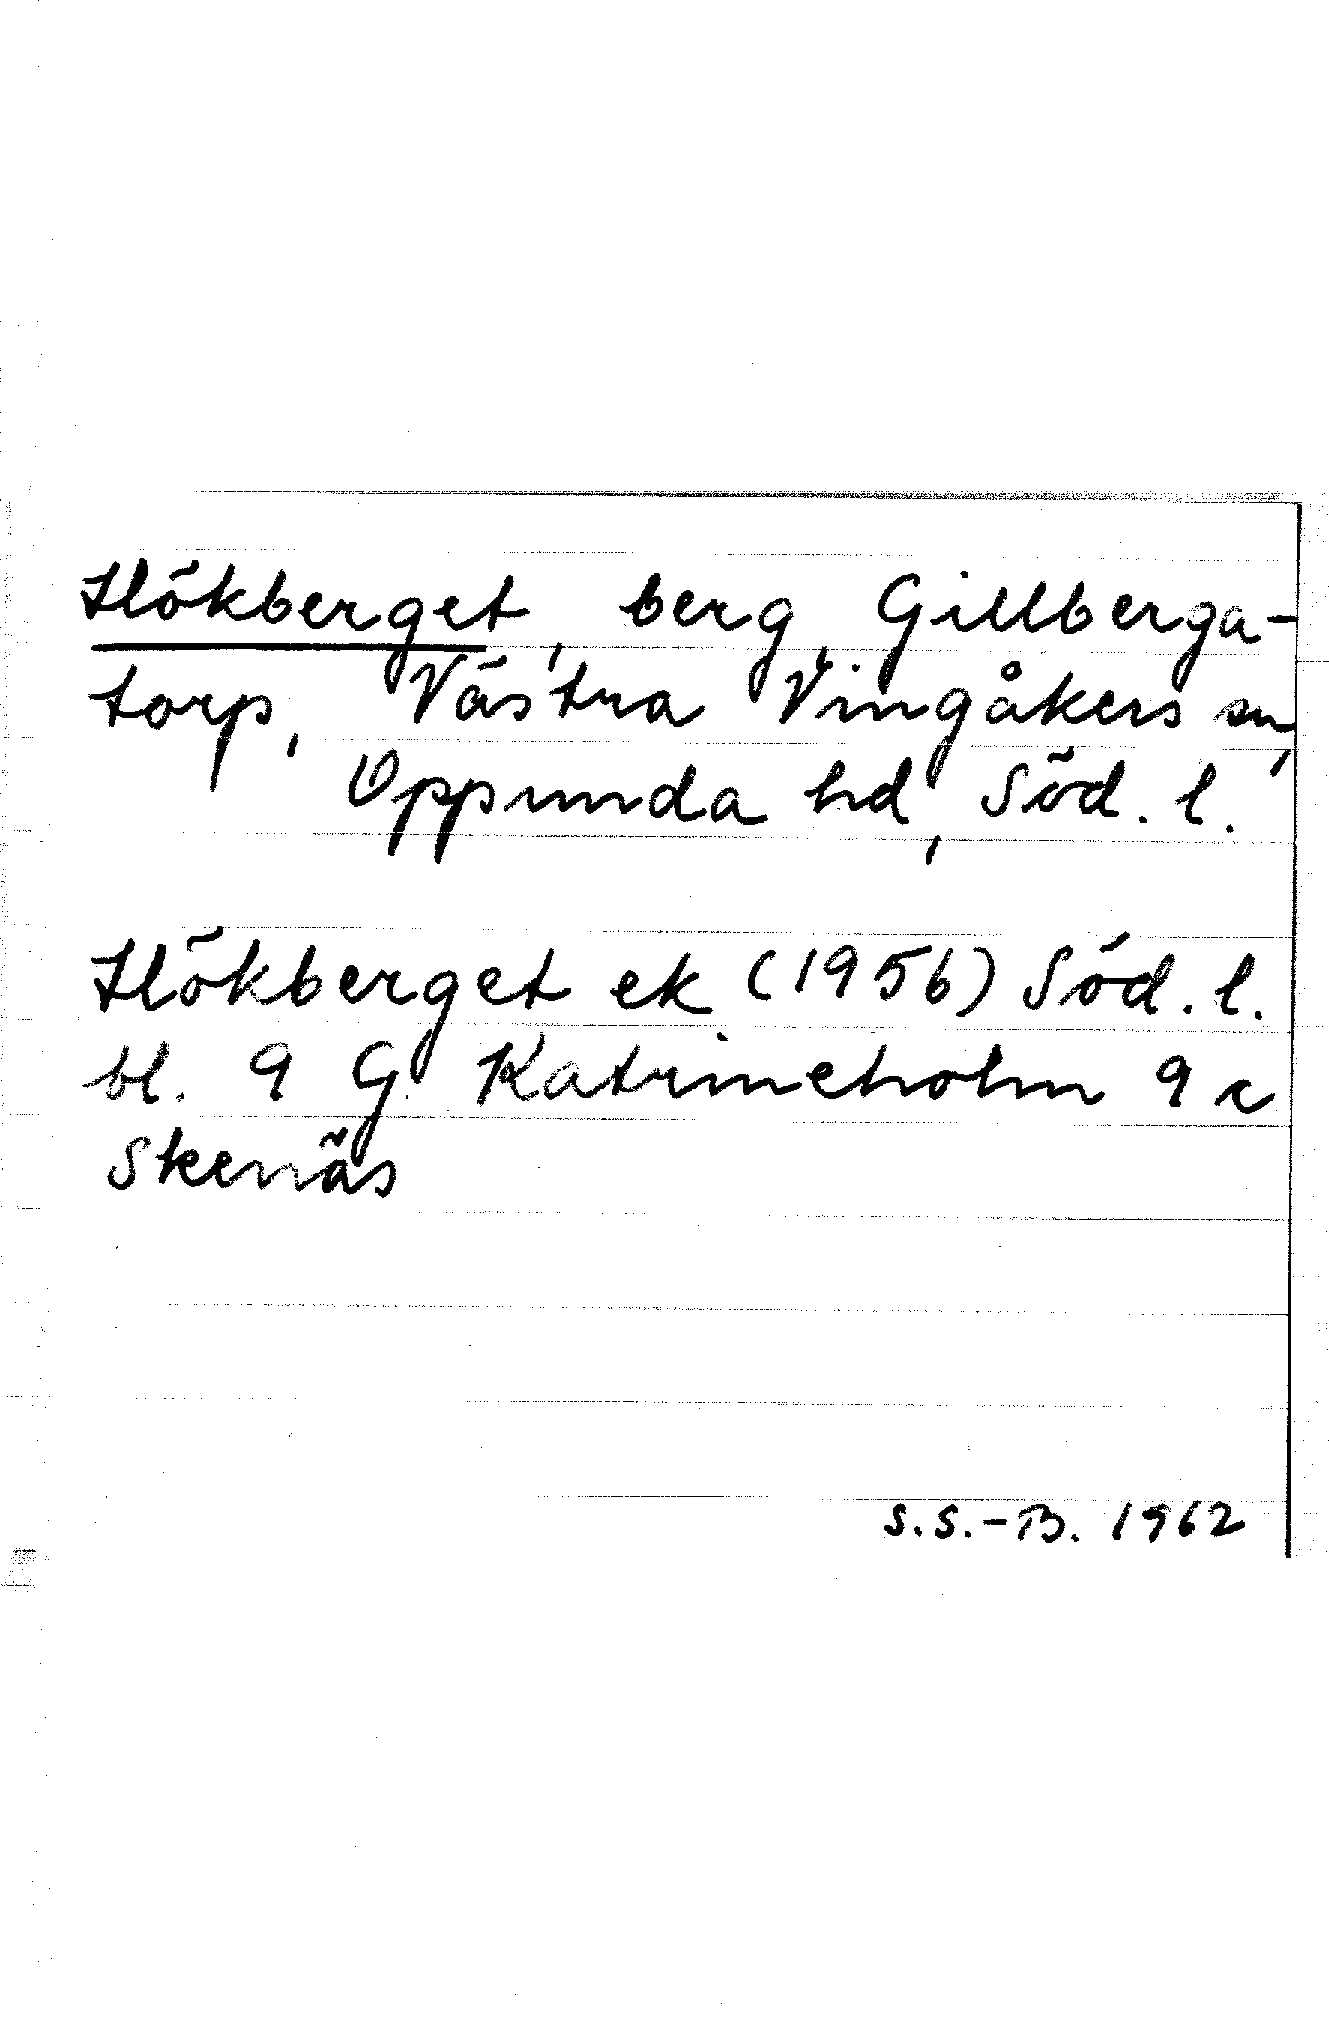 Hökberget, berg, Gillberga-
torp, Västra Vingåkers sn,
Oppunda hd, Söd. l.
Hökberget ek (1956) Söd. l.
bl. 9 G Katrineholm 9 c
Skenäs
S.S.-B. 1962